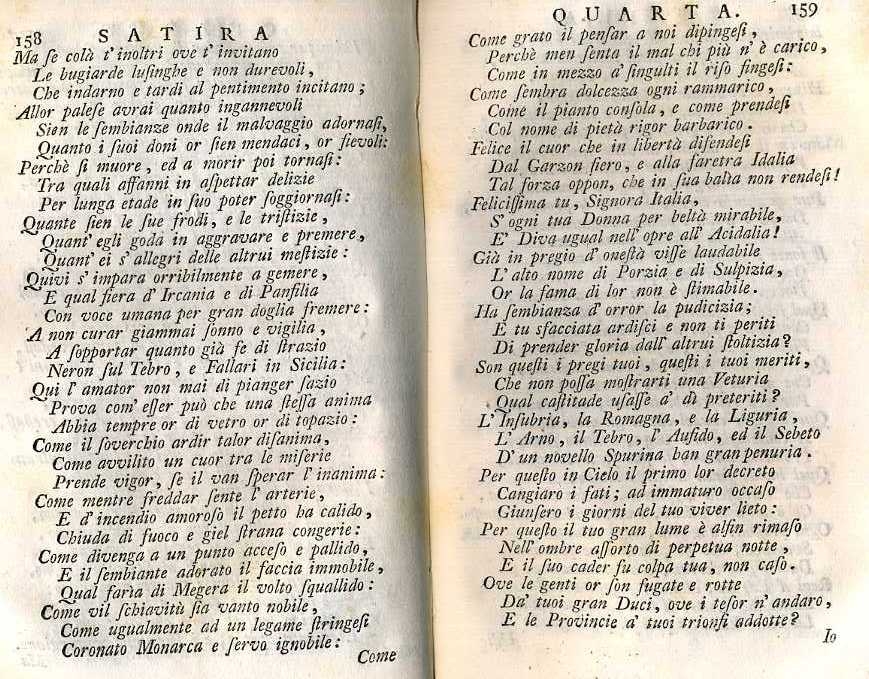 158 SATIRA
Ma ſe colà t' inoltri ove t' invitano
Le bugiarde luſinghe e non durevoli,
Che indarno e tardi al pentimento incitano;
Allor paleſe avrai quanto ingannevoli
Sien le ſembianze onde il malvaggio adornaſi,
Quanto i ſuoi doni or ſien mendaci, or fievoli:
Perchè ſi muore, ed a morir poi tornaſi:
Tra quali affanni in aſpettar delizie
Per lunga etade in ſuo poter ſoggiornaſi:
Quante ſien le ſue frodi, e le triſtizie,
Quant' egli goda in aggravare e premere,
Quant' ei s' allegri delle altrui meſtizie:
Quivi s' impara orribilmente a gemere,
E qual fiera d' Ircania e di Panfilia
Con voce umana per gran doglia fremere:
A non curar giammai ſonno e vigilia,
A ſopportar quanto già fe di ſtrazio
Neron ſul Tebro, e Fallari in Sicilia:
Qui l' amator non mai di pianger ſazio
Prova com' eſſer può che una ſteſſa anima
Abbia tempre or di vetro or di topazio:
Come il ſoverchio ardir talor diſanima,
Come avvilito un cuor tra le miſerie
Prende vigor, ſe il van ſperar l' inanima:
Come mentre freddar ſente l' arterie,
E d' incendio amoroſo il petto ha calido,
Chiuda di fuoco e giel ſtrana congerie:
Come divenga a un punto acceſo e pallido,
E il ſembiante adorato il faccia immobile,
Qual farìa di Megera il volto ſquallido:
Come vil ſchiavitù ſia vanto nobile,
Come ugualmente ad un legame ſtringeſi
Coronato Monarca e ſervo ignobile:
Come
QUARTA. 159
Come grato il penſar a noi dipingeſi,
Perchè men ſenta il mal chi più n' è carico,
Come in mezzo a' ſingulti il riſo fingeſi:
Come ſembra dolcezza ogni rammarico,
Come il pianto conſola, e come prendeſi
Col nome di pietà rigor barbarico.
Felice il cuor che in libertà difendeſi
Dal Garzon fiero, e alla faretra Idalia
Tal forza oppon, che in ſua balìa non rendeſi!
Feliciſſima tu, Signora Italia,
S' ogni tua Donna per beltà mirabile,
E' Diva ugual nell' opre all' Acidalia!
Già in pregio d' oneſtà viſſe laudabile
L' alto nome di Porzia e di Sulpizia,
Or la fama di lor non è ſtimabile.
Ha ſembianza d' orror la pudicizia;
E tu sfacciata ardiſci e non ti periti
Di prender gloria dall' altrui ſtoltizia?
Son queſti i pregi tuoi, queſti i tuoi meriti,
Che non poſſa moſtrarti una Veturia
Qual caſtitade uſaſſe a' dì preteriti?
L' Inſubria, la Romagna, e la Liguria,
L' Arno, il Tebro, l' Aufido, ed il Sebeto
D' un novello Spurina han gran penuria.
Per queſto in Cielo il primo lor decreto
Cangiaro i fati; ad immaturo occaſo
Giunſero i giorni del tuo viver lieto:
Per queſto il tuo gran lume è alfin rimaſo
Nell' ombre aſſorto di perpetua notte,
E il ſuo cader fu colpa tua, non caſo.
Ove le genti or ſon fugate e rotte
Da' tuoi gran Duci, ove i teſor n' andaro,
E le Provincie a' tuoi trionfi addotte?
Io